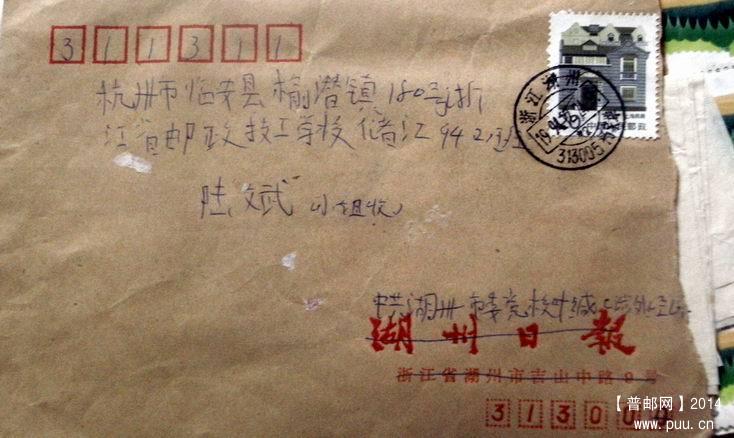 311311
杭州市临安县於潜镇180号浙
江省邮政技工学校储汇942班
陆斌武 小姐收
浙江湖州
313005
中国邮政
中共湖州市委党校
湖州日报
浙江省湖州市吉山中路9号
313000
【普邮网】2014
www.puu.cn